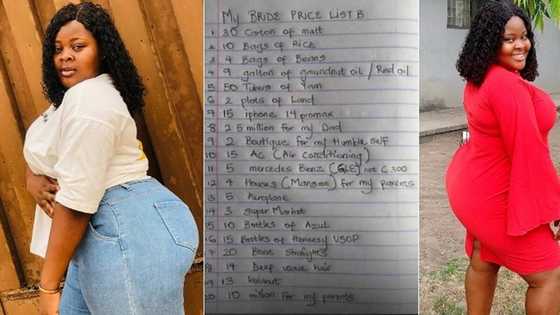 My BRIDE PRICE LIST B
1 30 Carton of malt
2 10 Bags of Rice
3 4 Bags of Beans
4 9 gallon of groundnut oil / Red oil
5 50 Tubers of Yam
6 2 plots of Land
7 15 iphone 14 promax
8 2.5 million for my Dad
9 2 Boutique for my Humble self
10 15 AC (Air conditioning)
11 5 mercedes Benz (GLE) not C 300
12 4 Houses (Mansion) for my parents
13 5 Aeroplane
14 3 super Market
15 10 Bottles of Azul
16 15 Bottles of Hennessy VSOP
17 20 Bone straight
18 14 Deep wave hair
19 13
20 10 million for my parents